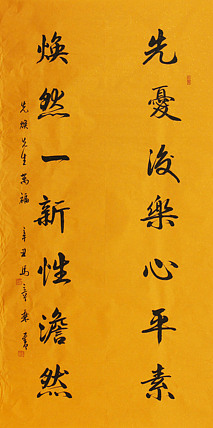 先憂後樂心平素
煥然一新性澹然
先煥先生萬福 辛丑馬